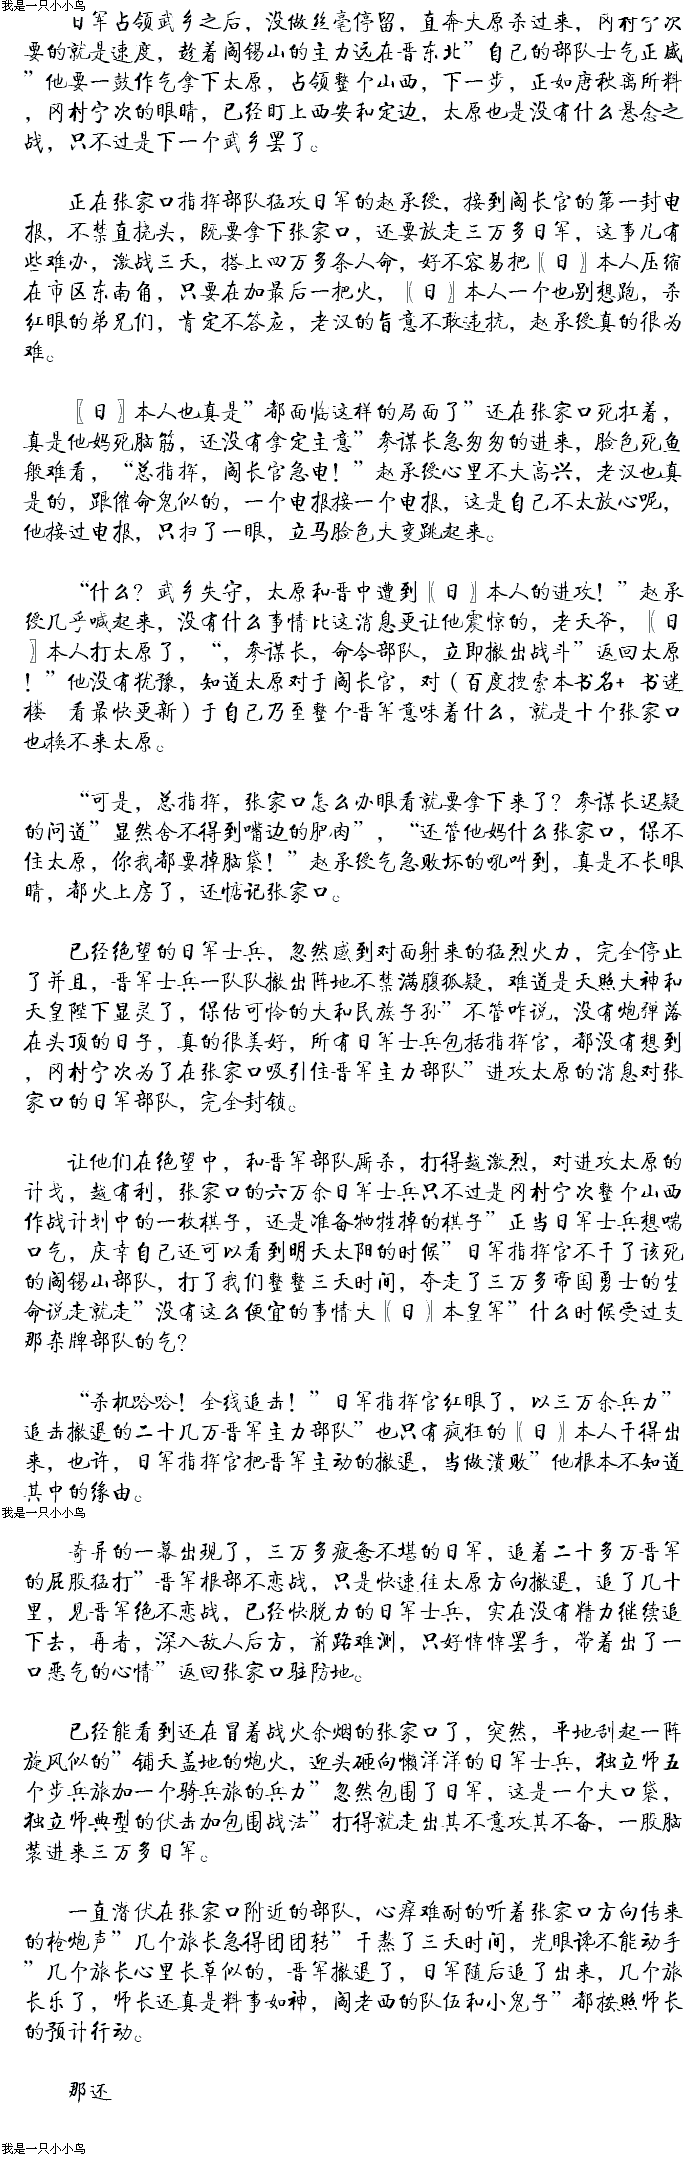 我是一只小小鸟
日军占领武乡之后，没做丝毫停留，直奔太原杀过来，冈村宁次
要的就是速度，趁着阎锡山的主力远在晋东北”自己的部队士气正盛
”他要一鼓作气拿下太原，占领整个山西，下一步，正如唐秋离所料
，冈村宁次的眼睛，已经盯上西安和定边，太原也是没有什么悬念之
战，只不过是下一个武乡罢了。
正在张家口指挥部队猛攻日军的赵承绶，接到阎长官的第一封电
报，不禁直挠头，既要拿下张家口，还要放走三万多日军，这事儿有
些难办，激战三天，搭上四万多条人命，好不容易把〖日〗本人压缩
在市区东南角，只要在加最后一把火，〖日〗本人一个也别想跑，杀
红眼的弟兄们，肯定不答应，老汉的旨意不敢违抗，赵承绶真的很为
难。
〖日〗本人也真是”都面临这样的局面了”还在张家口死扛着，
真是他妈死脑筋，还没有拿定主意”参谋长急匆匆的进来，脸色死鱼
般难看，“总指挥，阎长官急电！”赵承绶心里不大高兴，老汉也真
是的，跟催命鬼似的，一个电报接一个电报，这是自己不太放心呢，
他接过电报，只扫了一眼，立马脸色大变跳起来。
“什么？武乡失守，太原和晋中遭到〖日〗本人的进攻！”赵承
绶几乎喊起来，没有什么事情比这消息更让他震惊的，老天爷，〖日
〗本人打太原了，“，参谋长，命令部队，立即撤出战斗”返回太原
！”他没有犹豫，知道太原对于阎长官，对（百度搜索本书名+  书迷
楼  看最快更新）于自己乃至整个晋军意味着什么，就是十个张家口
也换不来太原。
“可是，总指挥，张家口怎么办眼看就要拿下来了？参谋长迟疑
的问道”显然舍不得到嘴边的肥肉”，“还管他妈什么张家口，保不
住太原，你我都要掉脑袋！”赵承绶气急败坏的吼叫到，真是不长眼
睛，都火上房了，还惦记张家口。
已经绝望的日军士兵，忽然感到对面射来的猛烈火力，完全停止
了并且，晋军士兵一队队撤出阵地不禁满腹狐疑，难道是天照大神和
天皇陛下显灵了，保佑可怜的大和民族子孙”不管咋说，没有炮弹落
在头顶的日子，真的很美好，所有日军士兵包括指挥官，都没有想到
，冈村宁次为了在张家口吸引住晋军主力部队”进攻太原的消息对张
家口的日军部队，完全封锁。
让他们在绝望中，和晋军部队厮杀，打得越激烈，对进攻太原的
计戈，越有利，张家口的六万余日军士兵只不过是冈村宁次整个山西
作战计划中的一枚棋子，还是准备牺牲掉的棋子”正当日军士兵想喘
口气，庆幸自己还可以看到明天太阳的时候”日军指挥官不干了该死
的阎锡山部队，打了我们整整三天时间，夺走了三万多帝国勇士的生
命说走就走”没有这么便宜的事情大〖日〗本皇军”什么时候受过支
那杂牌部队的气？
“杀机哈哈！全线追击！”日军指挥官红眼了，以三万余兵力”
追击撤退的二十几万晋军主力部队”也只有疯狂的〖日〗本人干得出
来，也许，日军指挥官把晋军主动的撤退，当做溃败”他根本不知道
其中的缘由。
我是一只小小鸟
奇异的一幕出现了，三万多疲惫不堪的日军，追着二十多万晋军
的屁股猛打”晋军根部不恋战，只是快速往太原方向撤退，追了几十
里，见晋军绝不恋战，已经快脱力的日军士兵，实在没有精力继续追
下去，再者，深入敌人后方，前路难测，只好悻悻罢手，带着出了一
口恶气的心情”返回张家口驻防地。
已经能看到还在冒着战火余烟的张家口了，突然，平地刮起一阵
旋风似的”铺天盖地的炮火，迎头砸向懒洋洋的日军士兵，独立师五
个步兵旅加一个骑兵旅的兵力”忽然包围了日军，这是一个大口袋，
独立师典型的伏击加包围战法”打得就走出其不意攻其不备，一股脑
装进来三万多日军。
一直潜伏在张家口附近的部队，心痒难耐的听着张家口方向传来
的枪炮声”几个旅长急得团团转”干熬了三天时间，光眼馋不能动手
”几个旅长心里长草似的，晋军撤退了，日军随后追了出来，几个旅
长乐了，师长还真是料事如神，阎老西的队伍和小鬼子”都按照师长
的预计行动。
那还
我是一只小小鸟